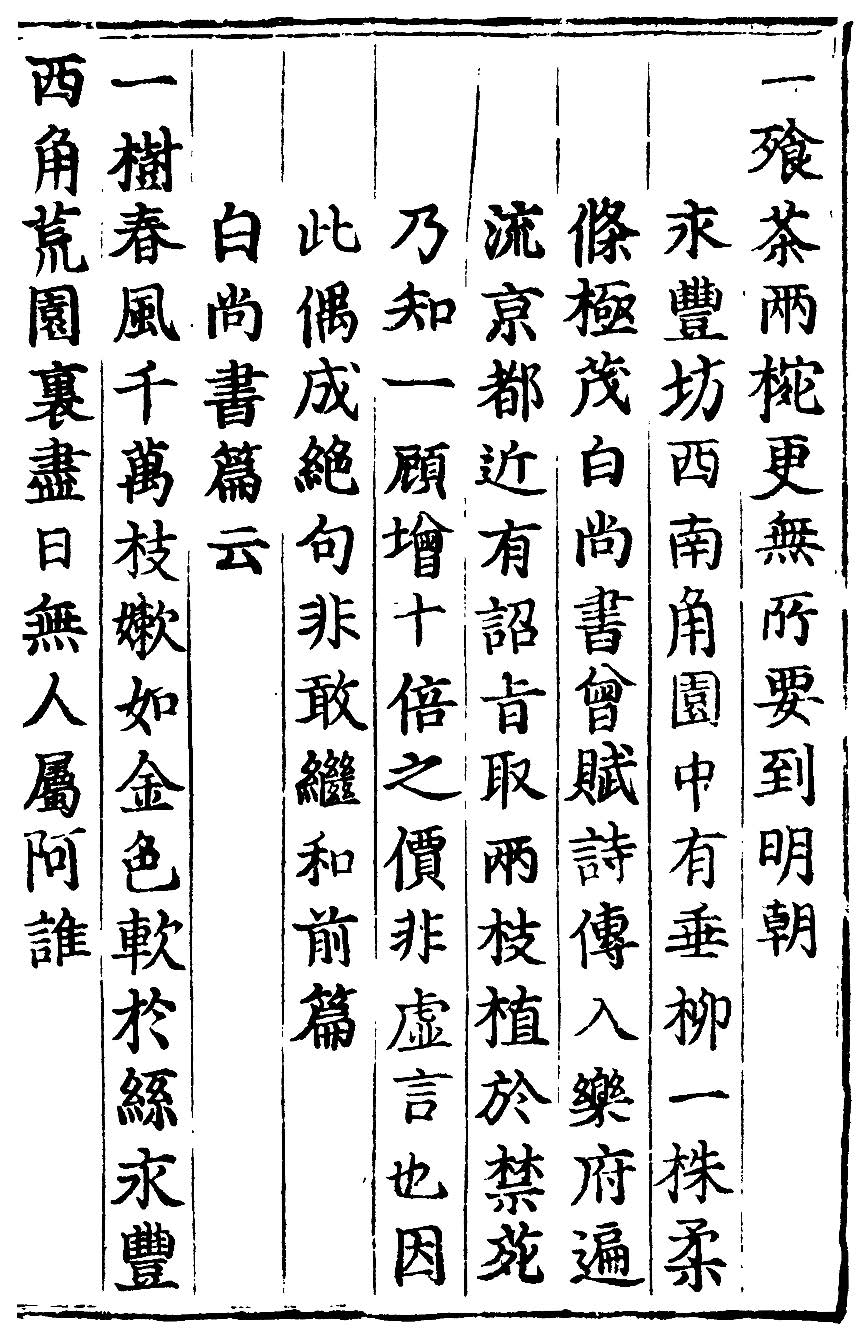 一飡茶兩椀更無所要到明朝
永豐坊西南角園中有垂柳一株柔
條極茂白尚書曾賦詩傳入樂府遍
流京都近有詔旨取兩枝植於禁苑
乃知一顧增十倍之價非虛言也因
此偶成絕句非敢繼和前篇
白尚書篇云
一樹春風千萬枝嫰如金色軟於絲永豐
西角荒園裏盡日無人屬阿誰